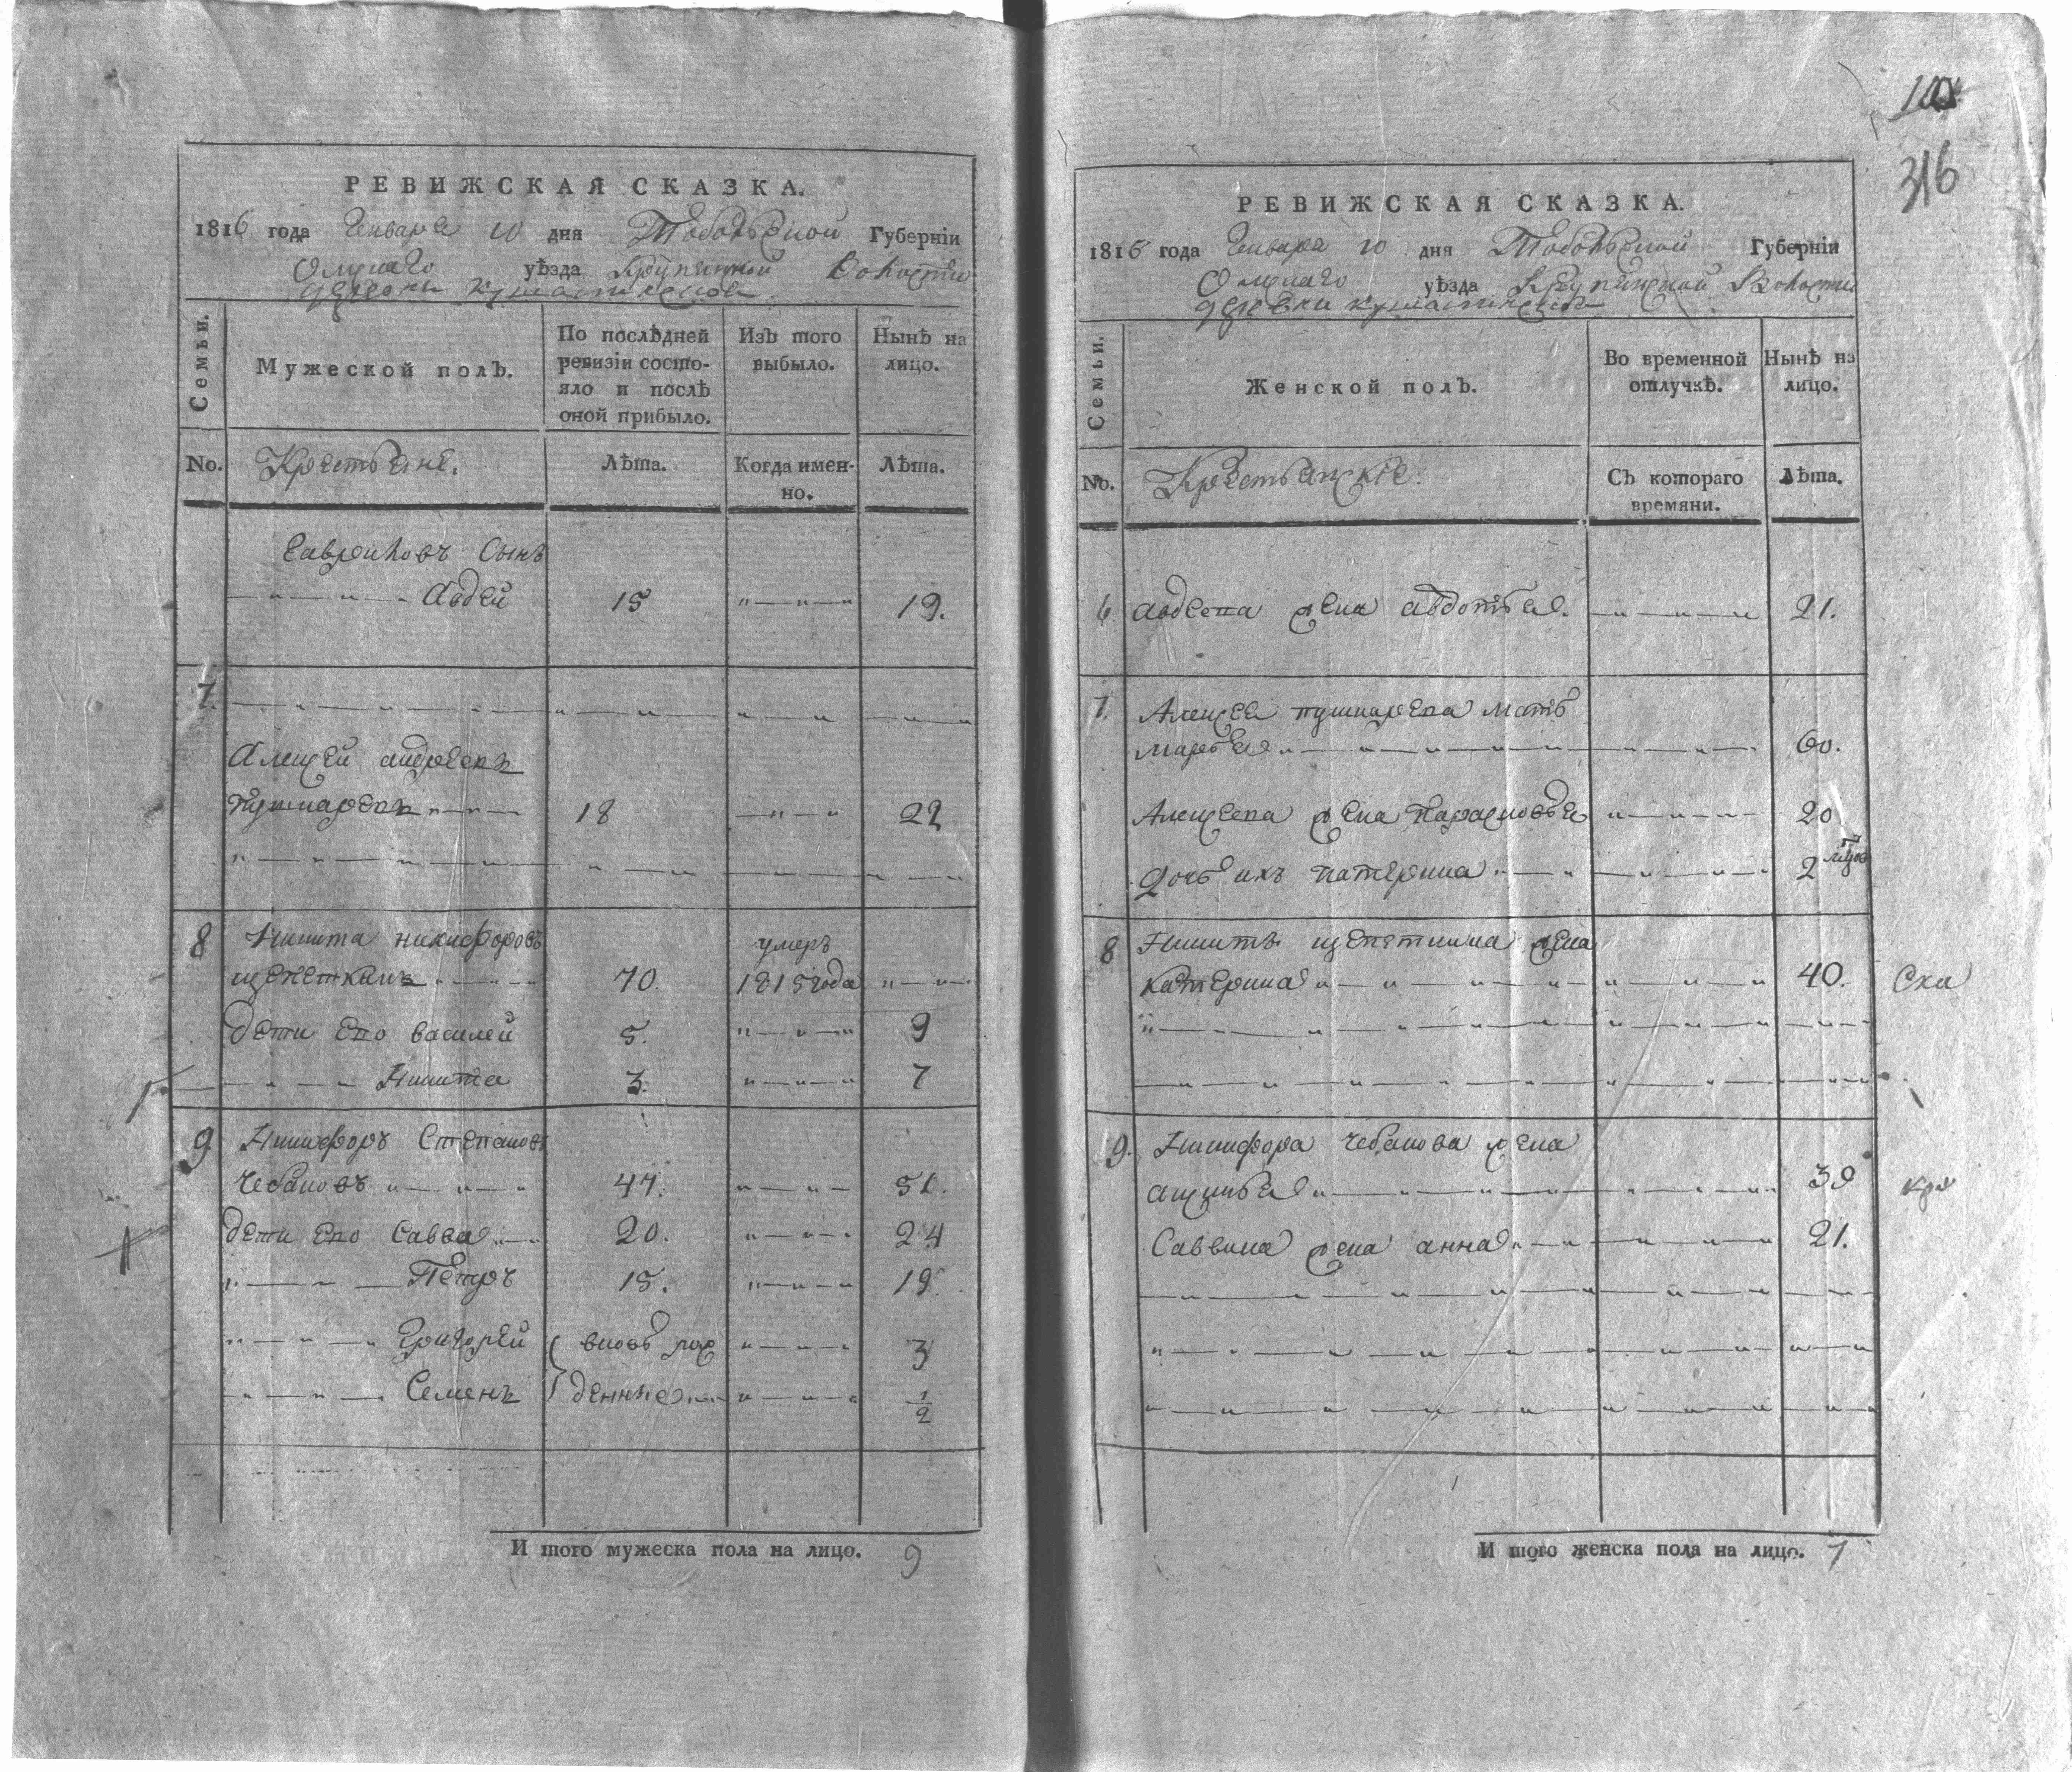 РЕВИЖСКАЯ СКАЗКА.
1816 года Генваря 10 дня Тобольской Губерніи
Омскаго уѣзда Крупинской Волости
деревни
Семьи.
Мужеской полъ.
По послѣдней ревизіи состо-
яло и послѣ
оной прибыло.
Изъ того выбыло.
Нынѣ на лицо.
No. Крестьяне. Лѣта. Когда имен-
но. Лѣта.
Гавриловъ Сынъ
Авдей 15 19.
7.
Алексей андреевъ
18 22
8 Никита никифоровъ умеръ
70. 1815 года
дети Ево василей 5. 9
Никита 3. 7
9 Никифоръ Степановъ
Чебаковъ 47. 51.
дети Ево Савва 20. 24
Петръ 15. 19.
Григорей вновь рож 3
Семенъ денные 1/2
И того мужеска пола на лицо. 9
316
РЕВИЖСКАЯ СКАЗКА.
1816 года Генваря 10 дня Тобольской Губерніи
Омскаго уѣзда Крупинской Волости
деревни
Семьи.
Женской полъ.
Во временной отлучкѣ.
Нынѣ на лицо.
No. Крестьянскіе. Съ котораго
времяни. Лѣта.
6 Авдеева жена авдотья. 21.
7. Алексея пушкарева мать
марья 60.
Алексеева жена Парасковья 20
дочь ихъ катерина 2
8 Никиты жена
катерина 40. Ска
9. Никифора Чебакова жена
39 кре
Саввина жена анна 21.
И того женска пола на лицо. 7